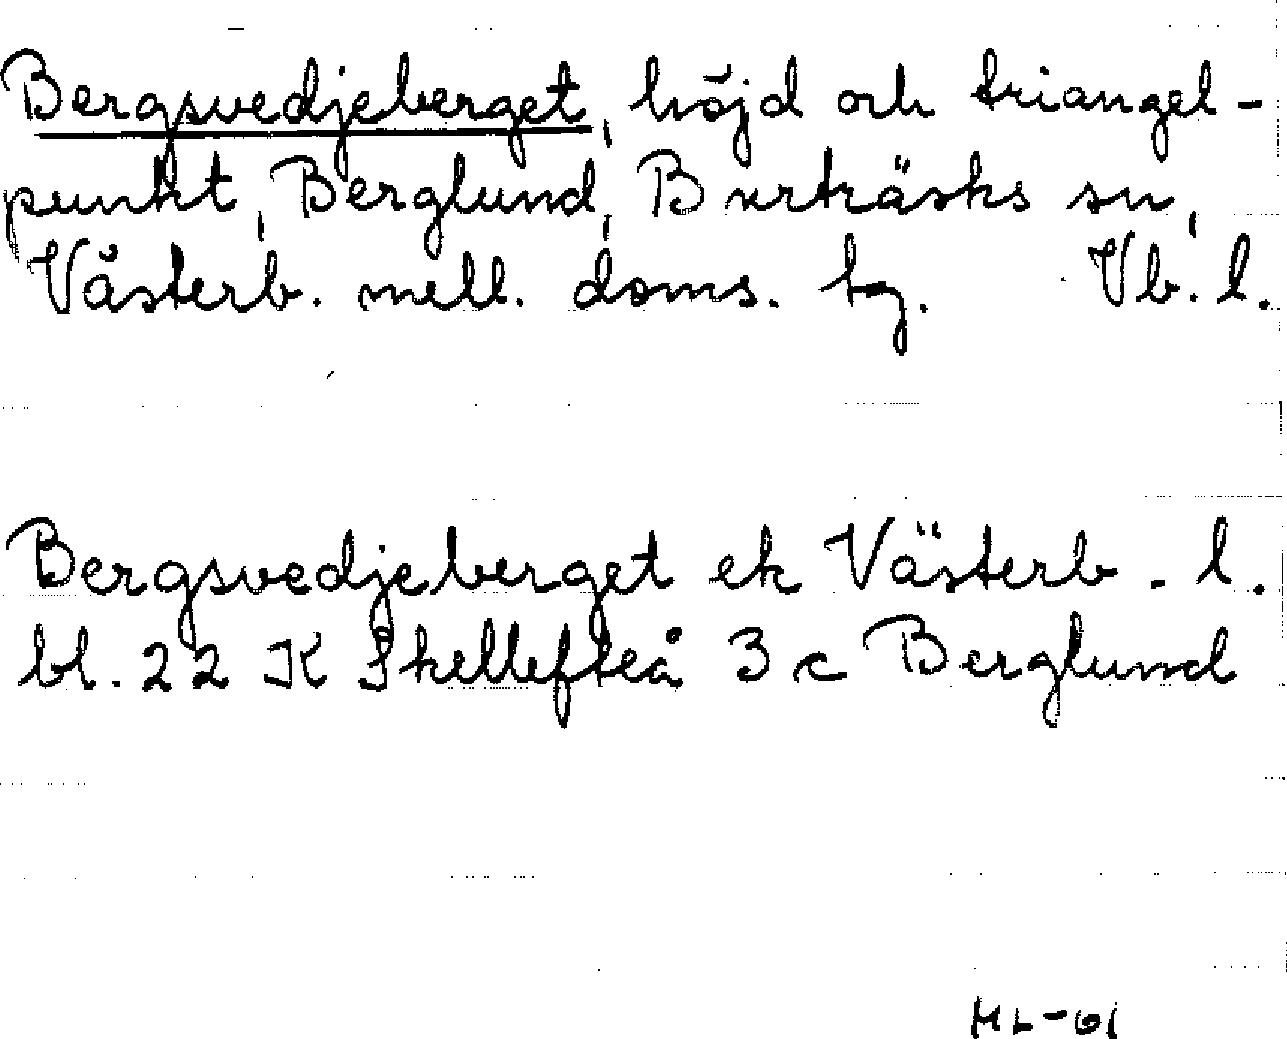 Bergsvedjeberget, höjd och triangel-
punkt, Berglund, Burträsks sn,
Västerb. mell. doms. tg. Vb. l.
Bergsvedjeberget ek Västerb. l.
bl. 22 K Skellefteå 3 c Berglund
HL-61